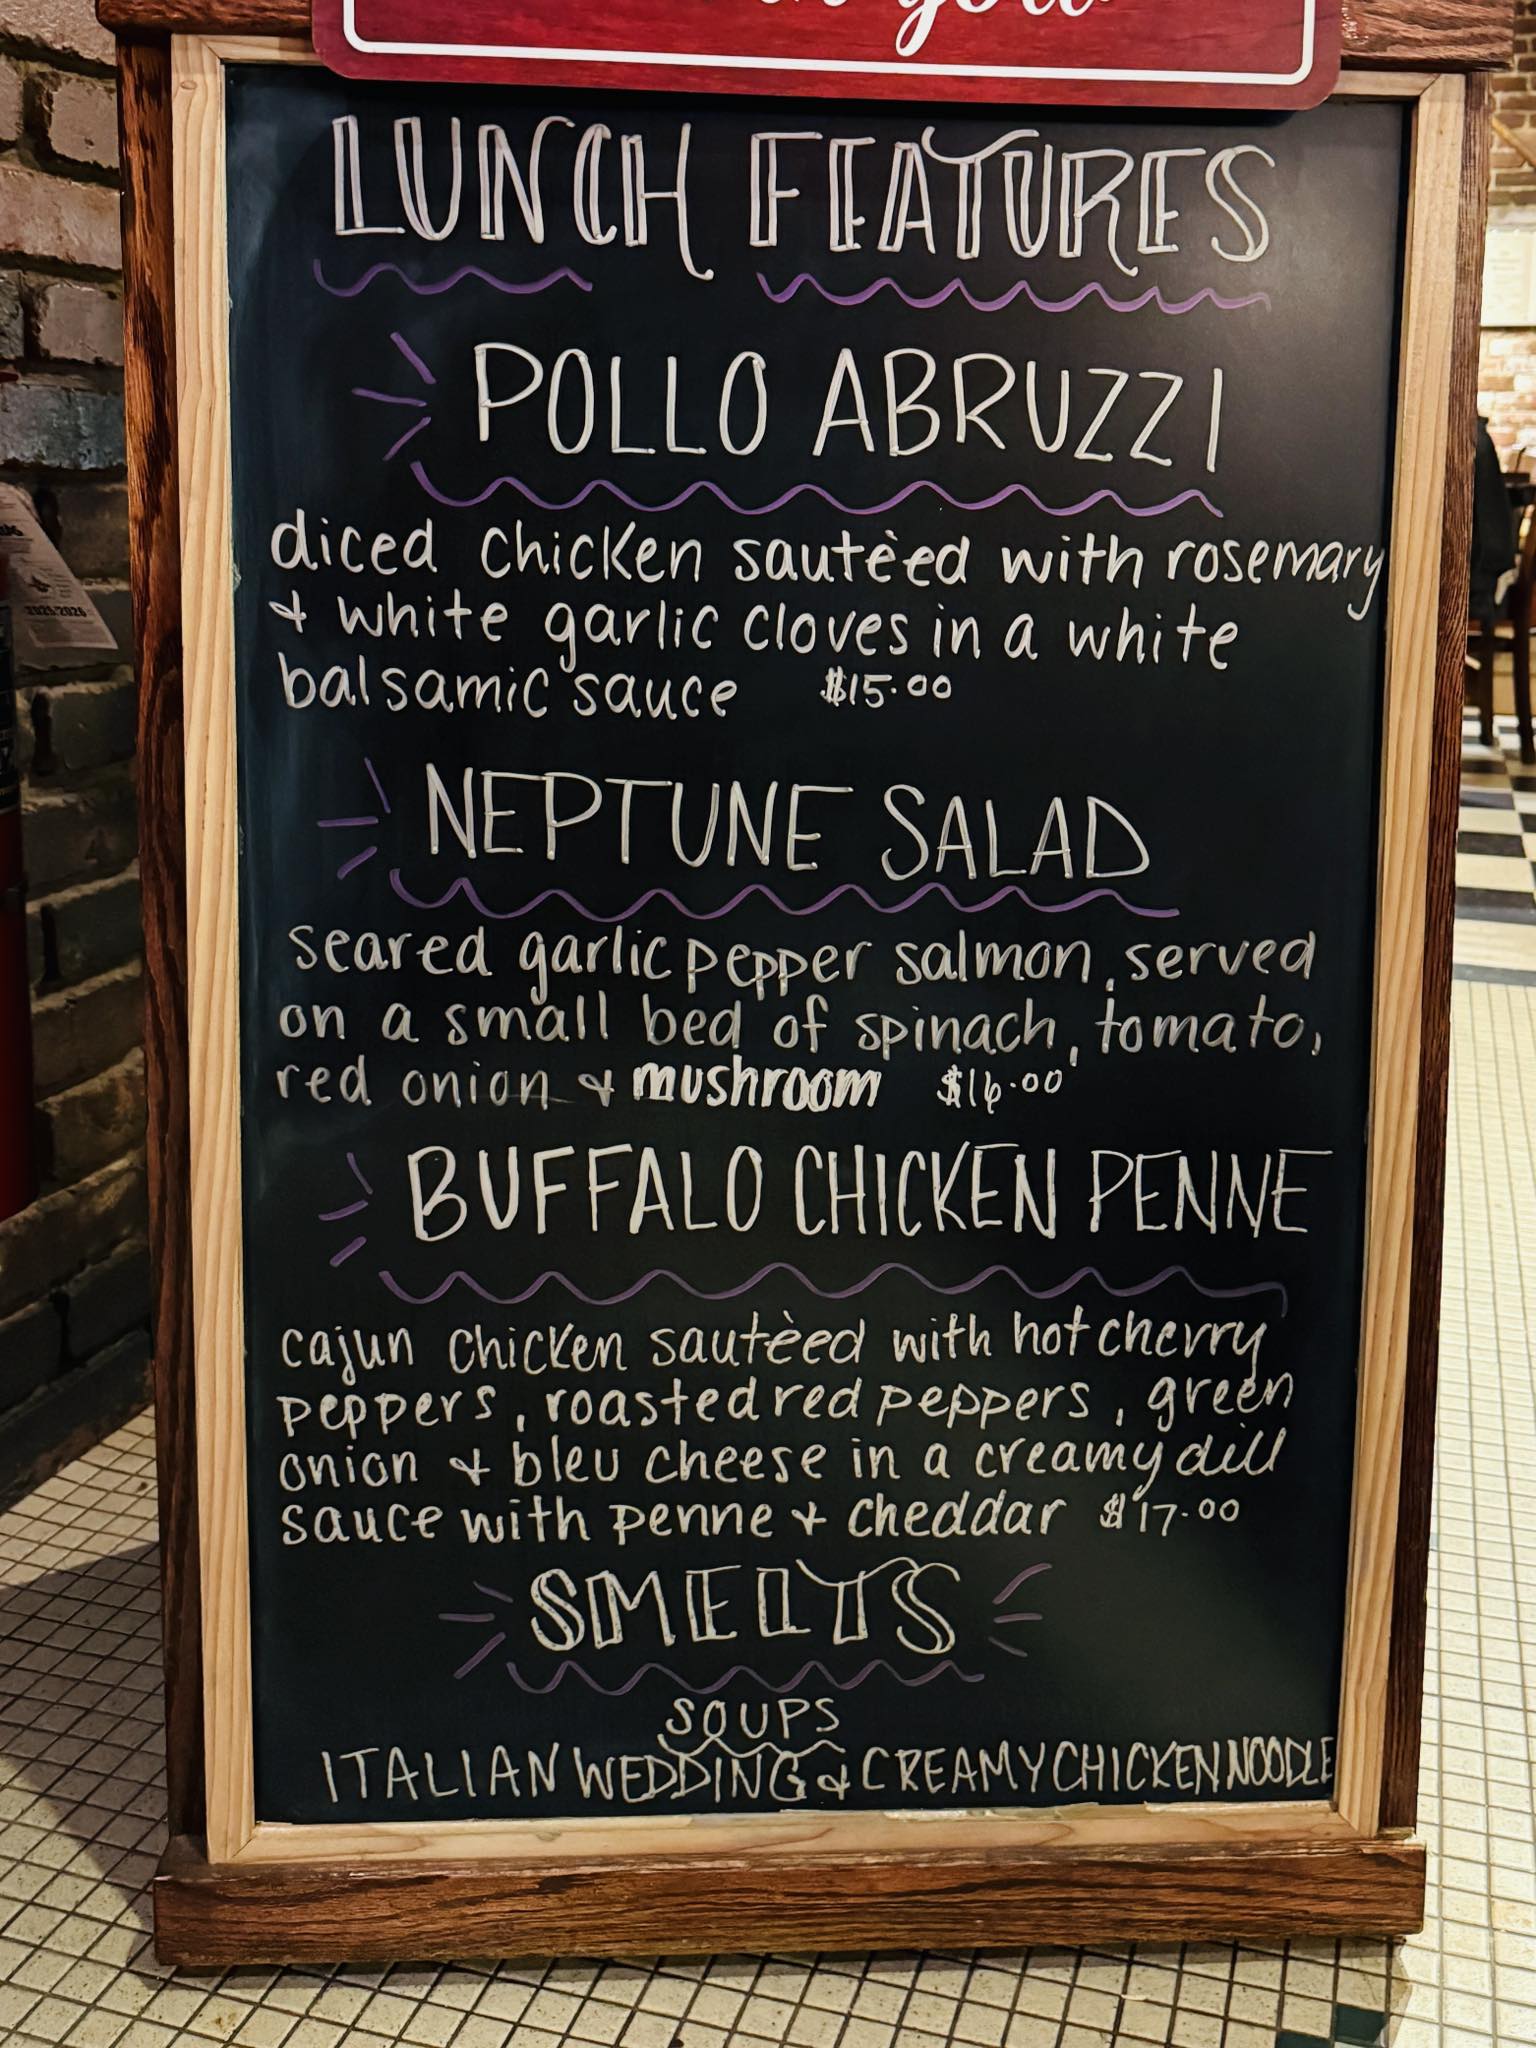 you
LUNCH FEATURES
POLLO ABRUZZI
diced chicken sautèed with rosemary
& white garlic cloves in a white
balsamic sauce $15.00
NEPTUNE SALAD
seared garlic pepper salmon, served
on a small bed of spinach, tomato,
red onion & mushroom $16.00
BUFFALO CHICKEN PENNE
cajun chicken sautèed with hot cherry
peppers, roasted red peppers, green
onion & bleu cheese in a creamy dill
sauce with penne & cheddar $17.00
SMELTS
SOUPS
ITALIAN WEDDING & CREAMY CHICKEN NOODLE
2025-2026